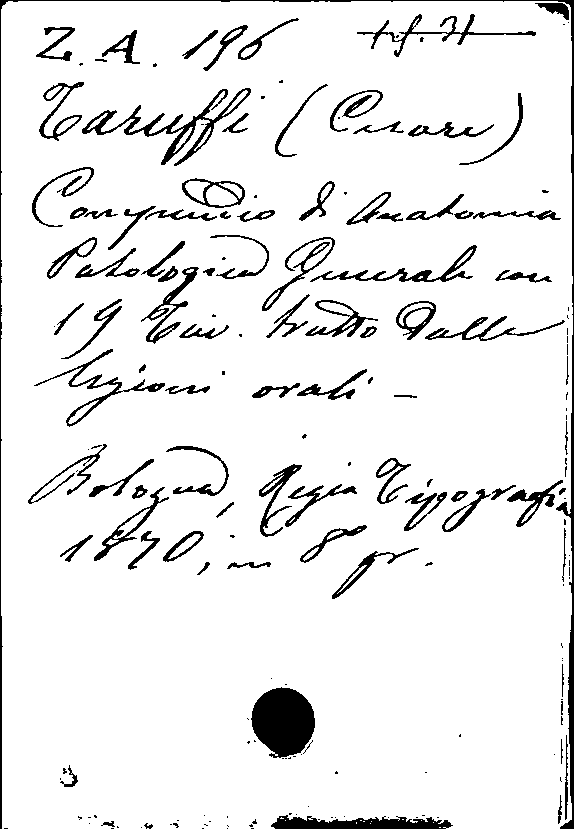 Z. A. 196
Taruffi (Cesare)
Compendio di Anatomia
Patologica Generale con
19 Tav. tratto dalle
lezioni orali -
Bologna, Regia Tipografia
1870, in 8° gr.